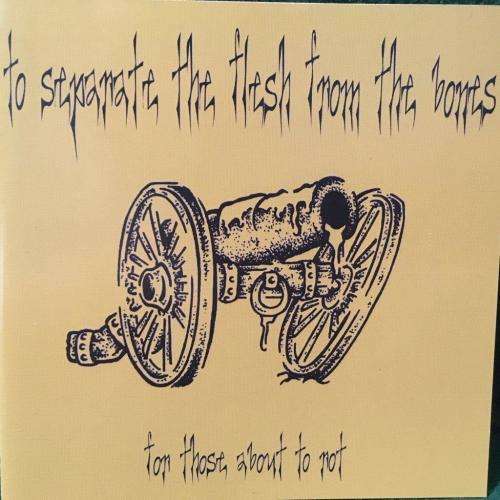 to separate the flesh from the bones
for those about to rot